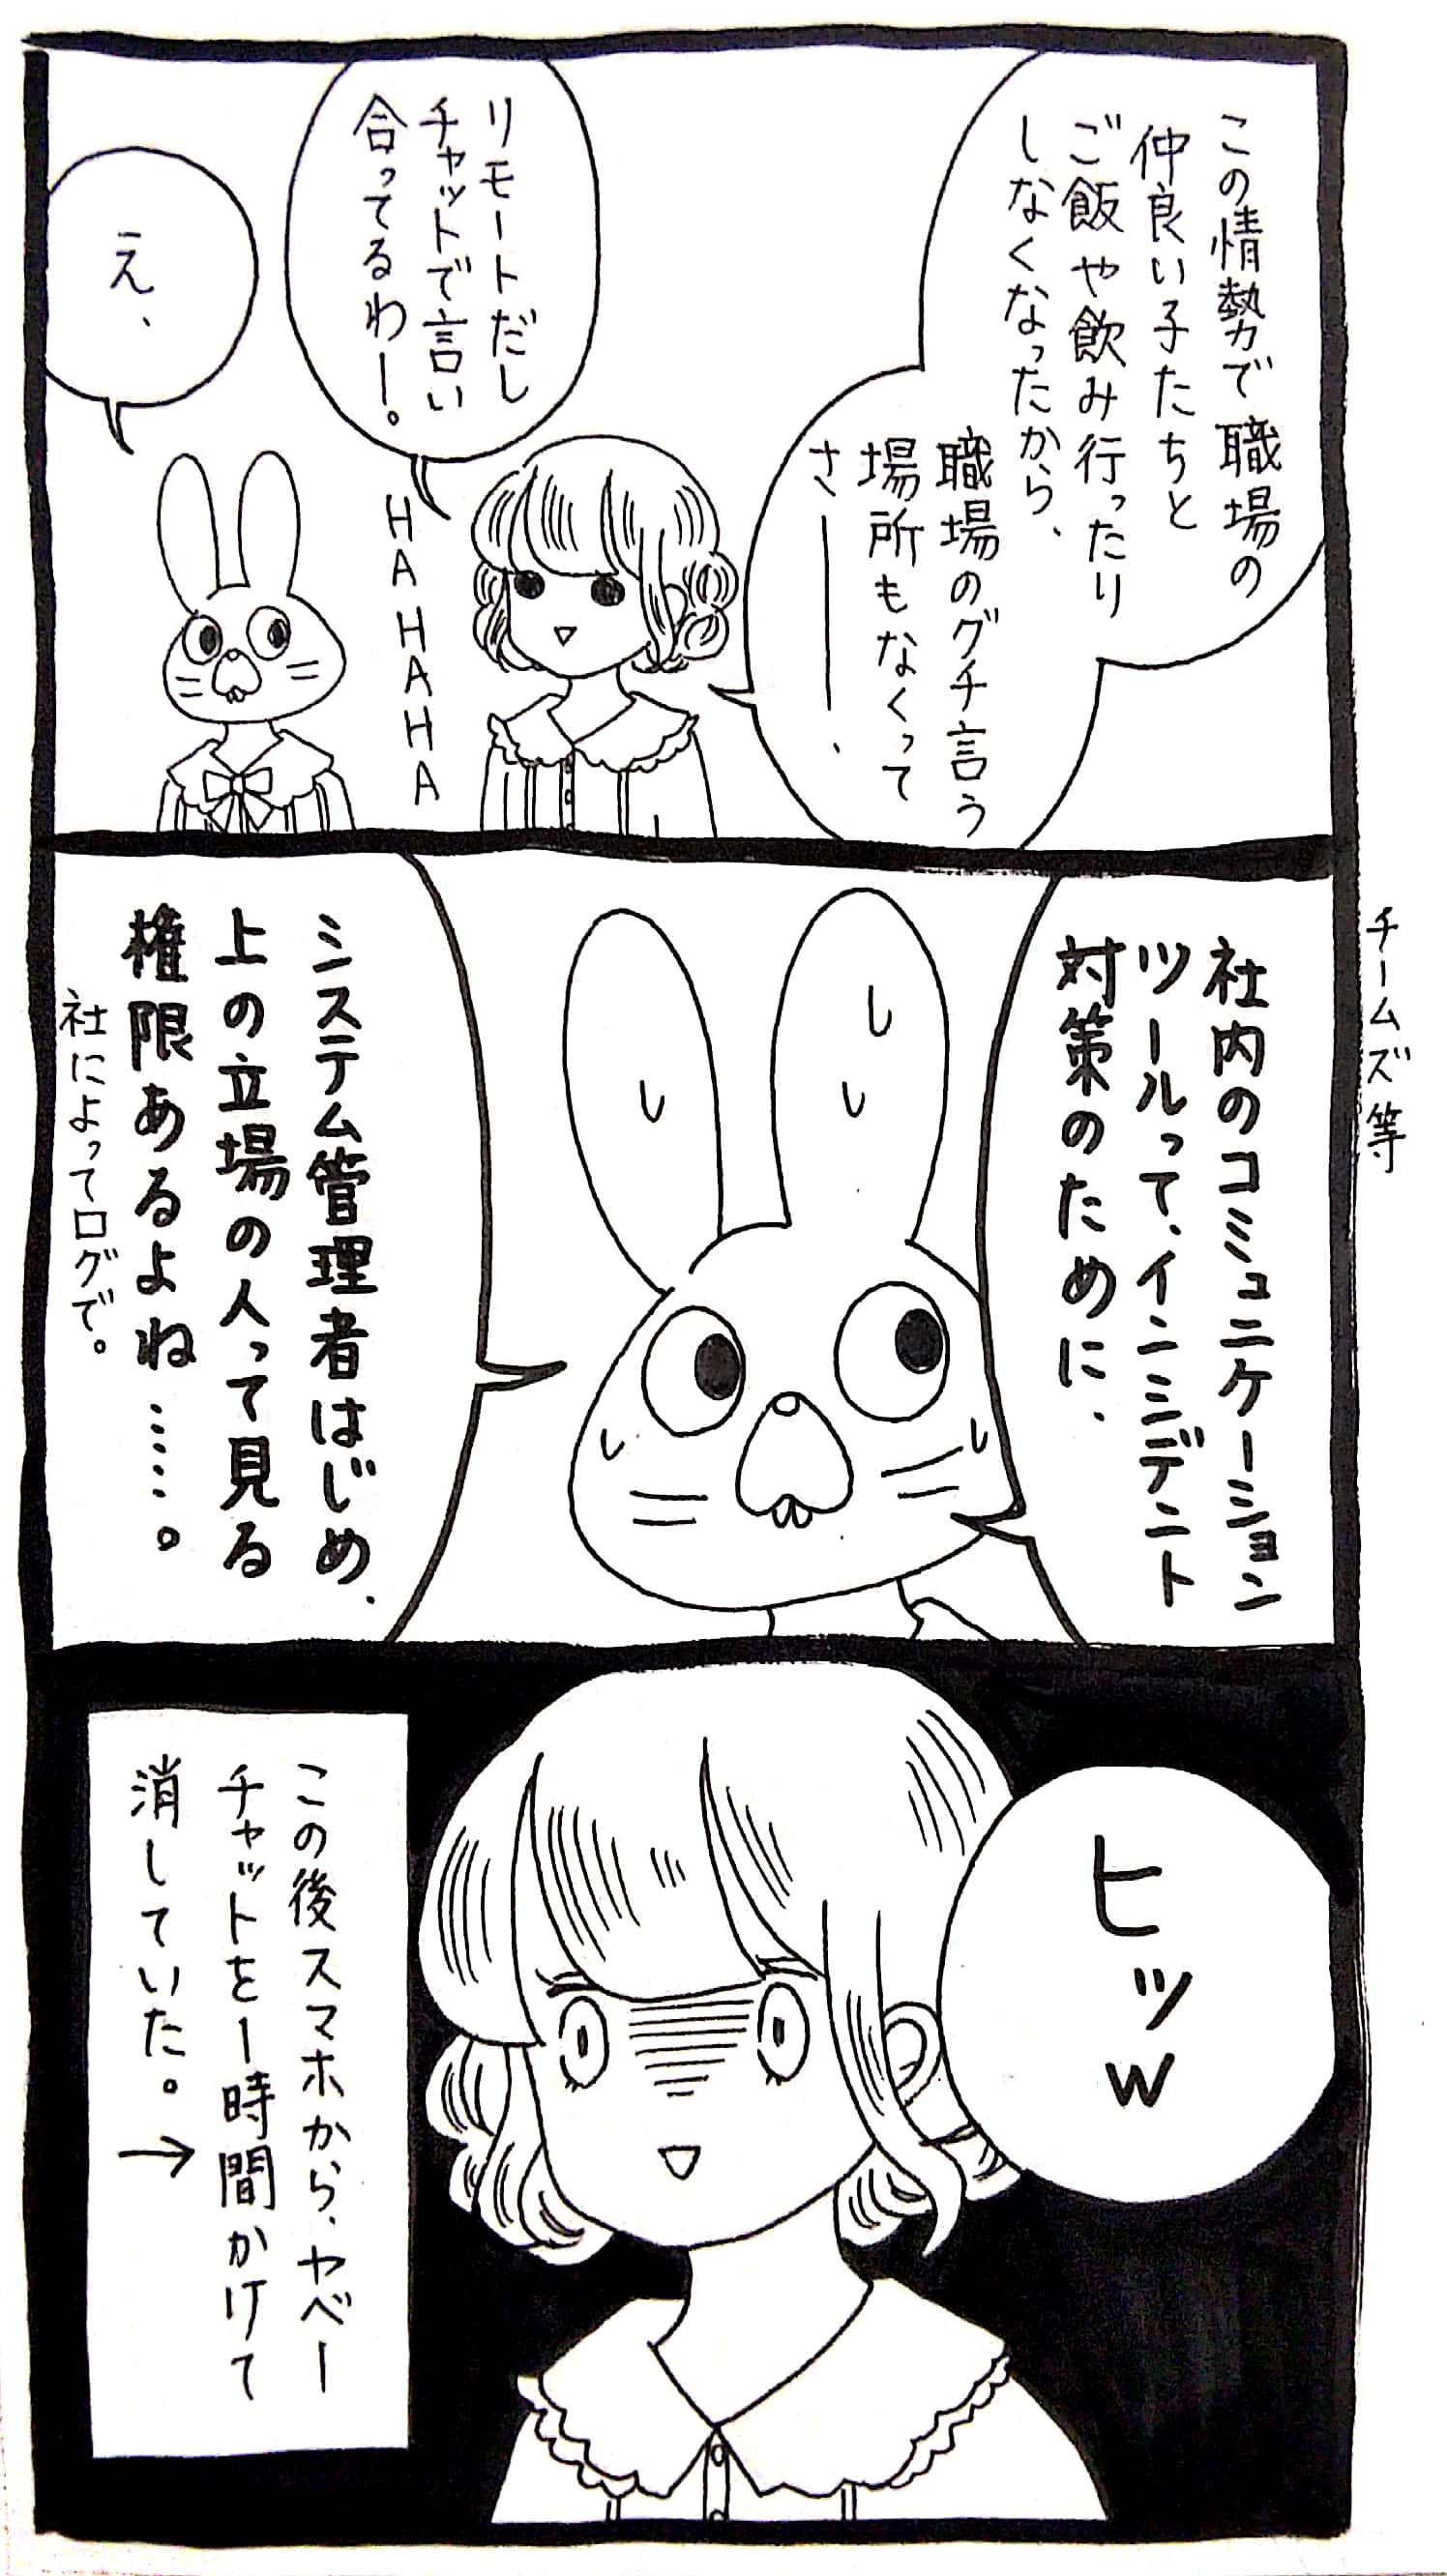 この情勢で職場の
仲良い子たちと
ご飯や飲み行ったり
しなくなったから、
職場のグチ言う
場所もなくって
さー、
リモートだし
チャットで言い
合ってるわー。
HAHAHAHA
え、
チームズ等
社内のコミュニケーション
ツールって、インシデント
対策のために、
システム管理者はじめ、
上の立場の人って見る
権限あるよね……。
社によってログで。
ヒッw
この後スマホから、ヤベー
チャットを1時間かけて
消していた。→